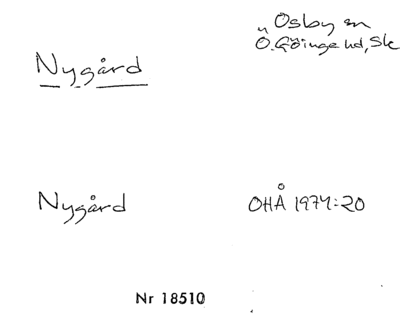 Osby sn
Ö. Göinge hd, Sk
Nygård
Nygård
OHÅ 1974:20
Nr 18510